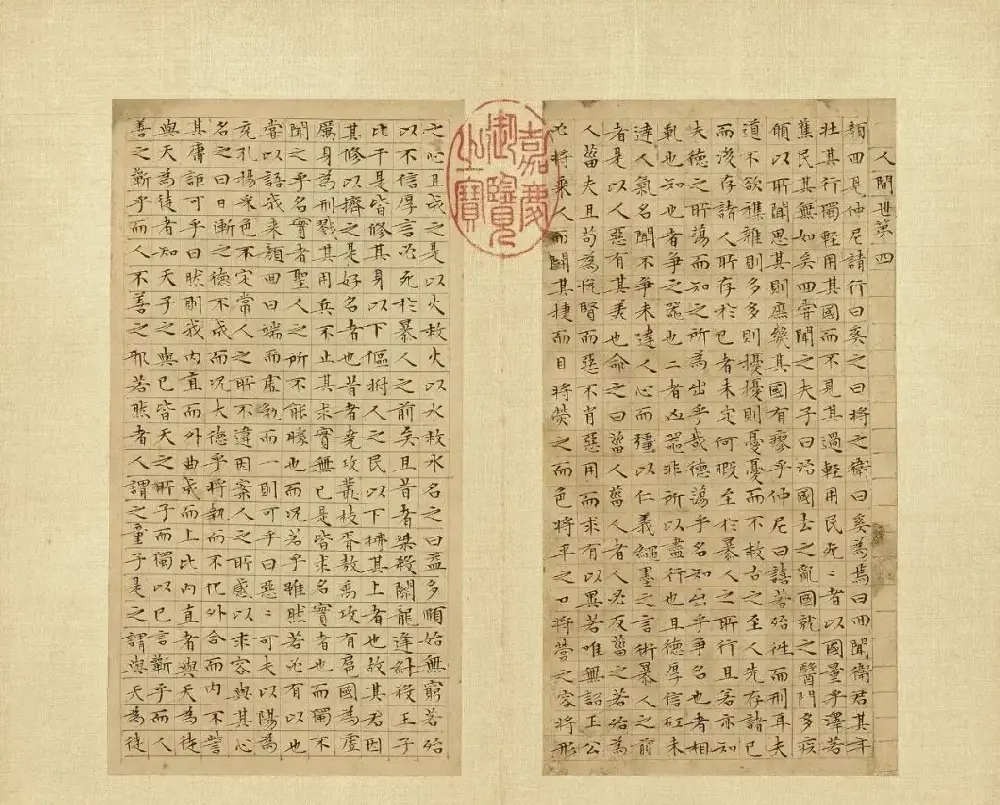 人間世第四
顏回見仲尼請行曰奚之曰將之衛曰奚為焉曰回聞衛君其年
壯其行獨輕用其國而不見其過輕用民死〻者以國量乎澤若
蕉民其無如矣回嘗聞之夫子曰治國去之亂國就之醫門多疾
願以所聞思其則庶幾其國有瘳乎仲尼曰譆若殆往而刑耳夫
道不欲襍雜則多多則擾擾則憂憂而不救古之至人先存諸已
而後存諸人所存於已者未定何暇至於暴人之所行且若亦知
夫德之所蕩而知之所為出乎哉德蕩乎名知出乎爭名也者相
軋也知也者爭之器也二者凶器非所以盡行也且德厚信矼未
達人氣名聞不爭未達人心而彊以仁義繩墨之言術暴人之前
者是以人惡有其美也命之曰菑人菑人者人必反菑之若殆為
人菑夫且苟為悅賢而惡不肖惡用而求有以異若唯無詔王公
必將乘人而鬬其捷而目將熒之而色將平之口將營之容將形
之心且成之是以火救火以水救水名之曰益多順始無窮若殆
以不信厚言必死於暴人之前矣且昔者桀殺關龍逢紂殺王子
比干是皆修其身以下傴拊人之民以下拂其上者也故其君因
其修以擠之是好名者也昔者堯攻叢枝胥敖禹攻有扈國為虛
厲身為刑戮其用兵不止其求實無已是皆求名實者也而獨不
聞之乎名實者聖人之所不能勝也而況若乎雖然若必有以也
嘗以語我來顏回曰端而虛勉而一則可乎曰惡〻可夫以陽為
充孔揚采色不定常人之所不違因案人之所感以求容與其心
名之曰日漸之德不成而況大德乎將執而不化外合而內不訾
其庸詎可乎曰然則我內直而外曲成而上比內直者與天為徒
與天為徒者知天子之與已皆天之所子而獨以已言蘄乎而人
善之蘄乎而人不善之邪若然者人謂之童子是之謂與天為徒
嘉慶御覽之寶